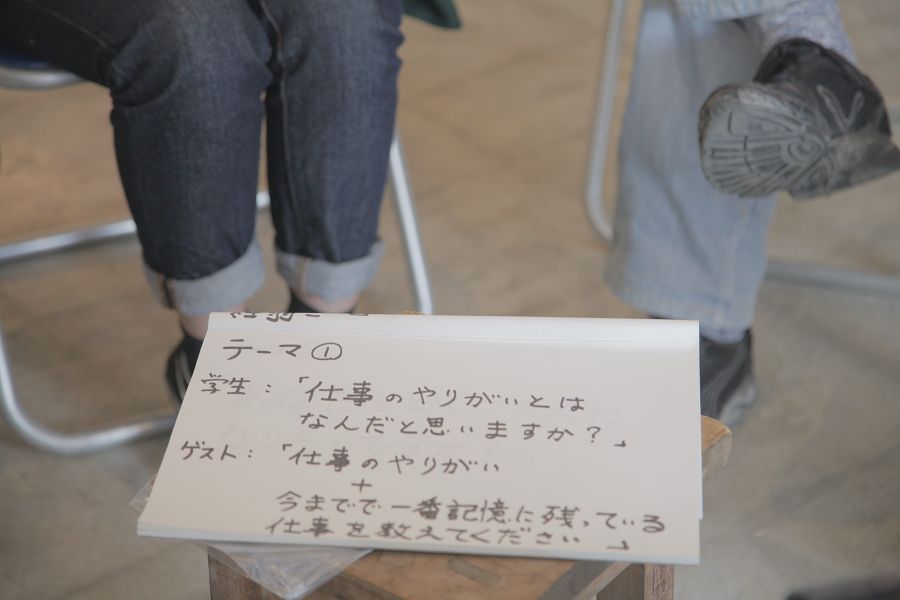 テーマ①
学生：「仕事のやりがいとは
なんだと思いますか？」
ゲスト：「仕事のやりがい
+
今までで一番記憶に残っている
仕事を教えてください」